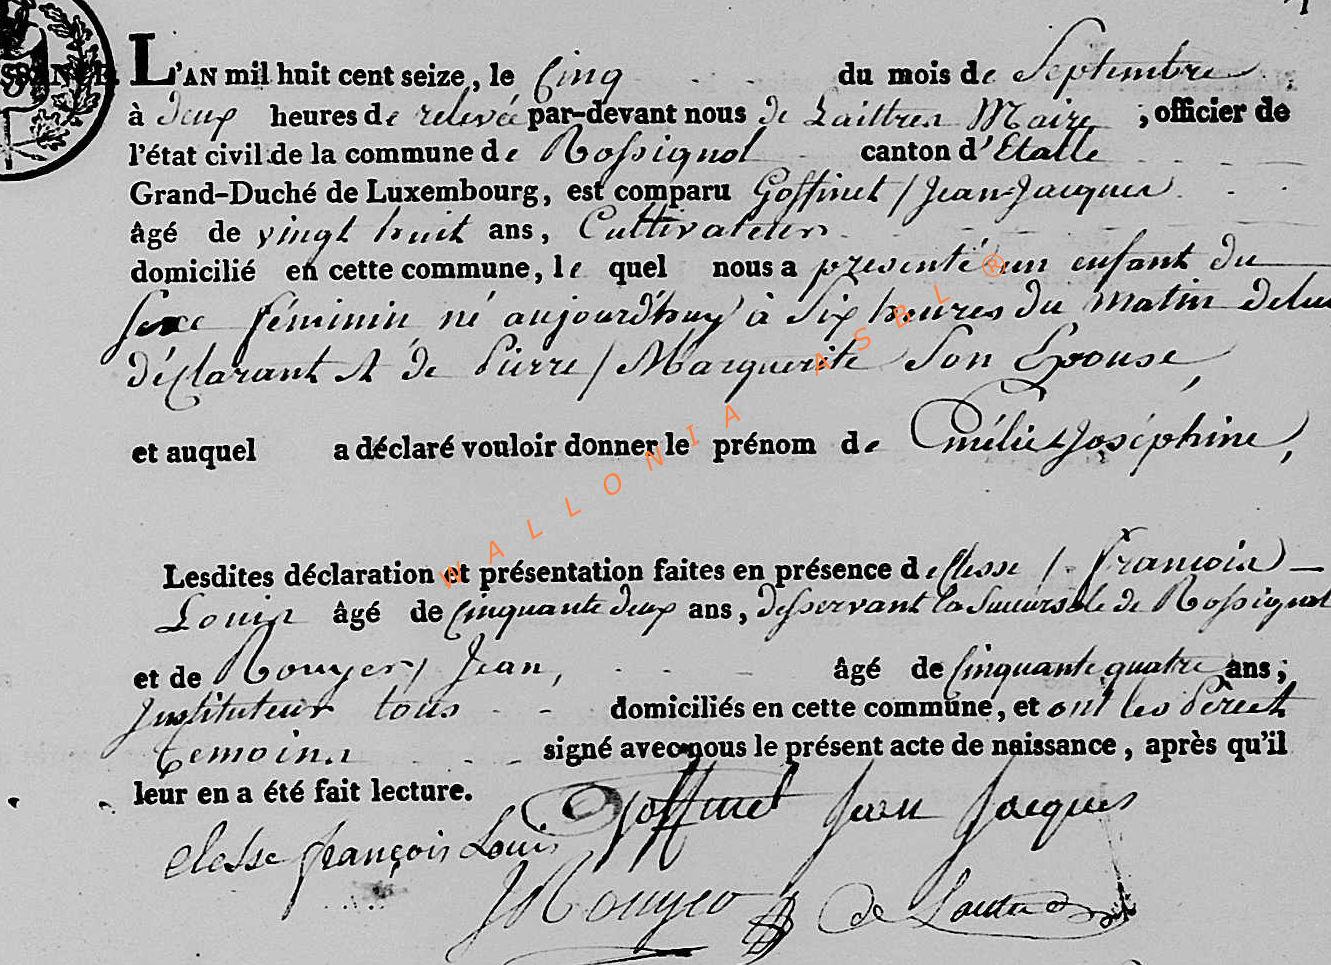 L'AN mil huit cent seize, le Cinq du mois de Septembre
à deux heures de relevée par-devant nous de Laittres Maire ; officier de
l'état civil de la commune de Rossignol canton d'Etalle
Grand-Duché de Luxembourg, est comparu Goffinet / Jean-Jacques
âgé de vingt huit ans, Cultivateur
domicilié en cette commune, le quel nous a présenté un enfant du
Sexe féminin né aujourd'huy à Six heures du matin de lui
déclarant et de Pierre / Marguerite Son Epouse,
et auquel a déclaré vouloir donner le prénom de Emélie Joséphine,
Lesdites déclaration et présentation faites en présence de Clesse / françois
Louis âgé de Cinquante deux ans, desservant la Succursale de Rossignol
et de Rouyer / Jean, âgé de Cinquante quatre ans ;
Instituteur tous domiciliés en cette commune, et ont les Père et
temoins signé avec nous le présent acte de naissance, après qu'il
leur en a été fait lecture.
Goffinet Jean Jacques
Clesse françois Louis
JRouyer de Laittres
WALLONIA ASBL ®